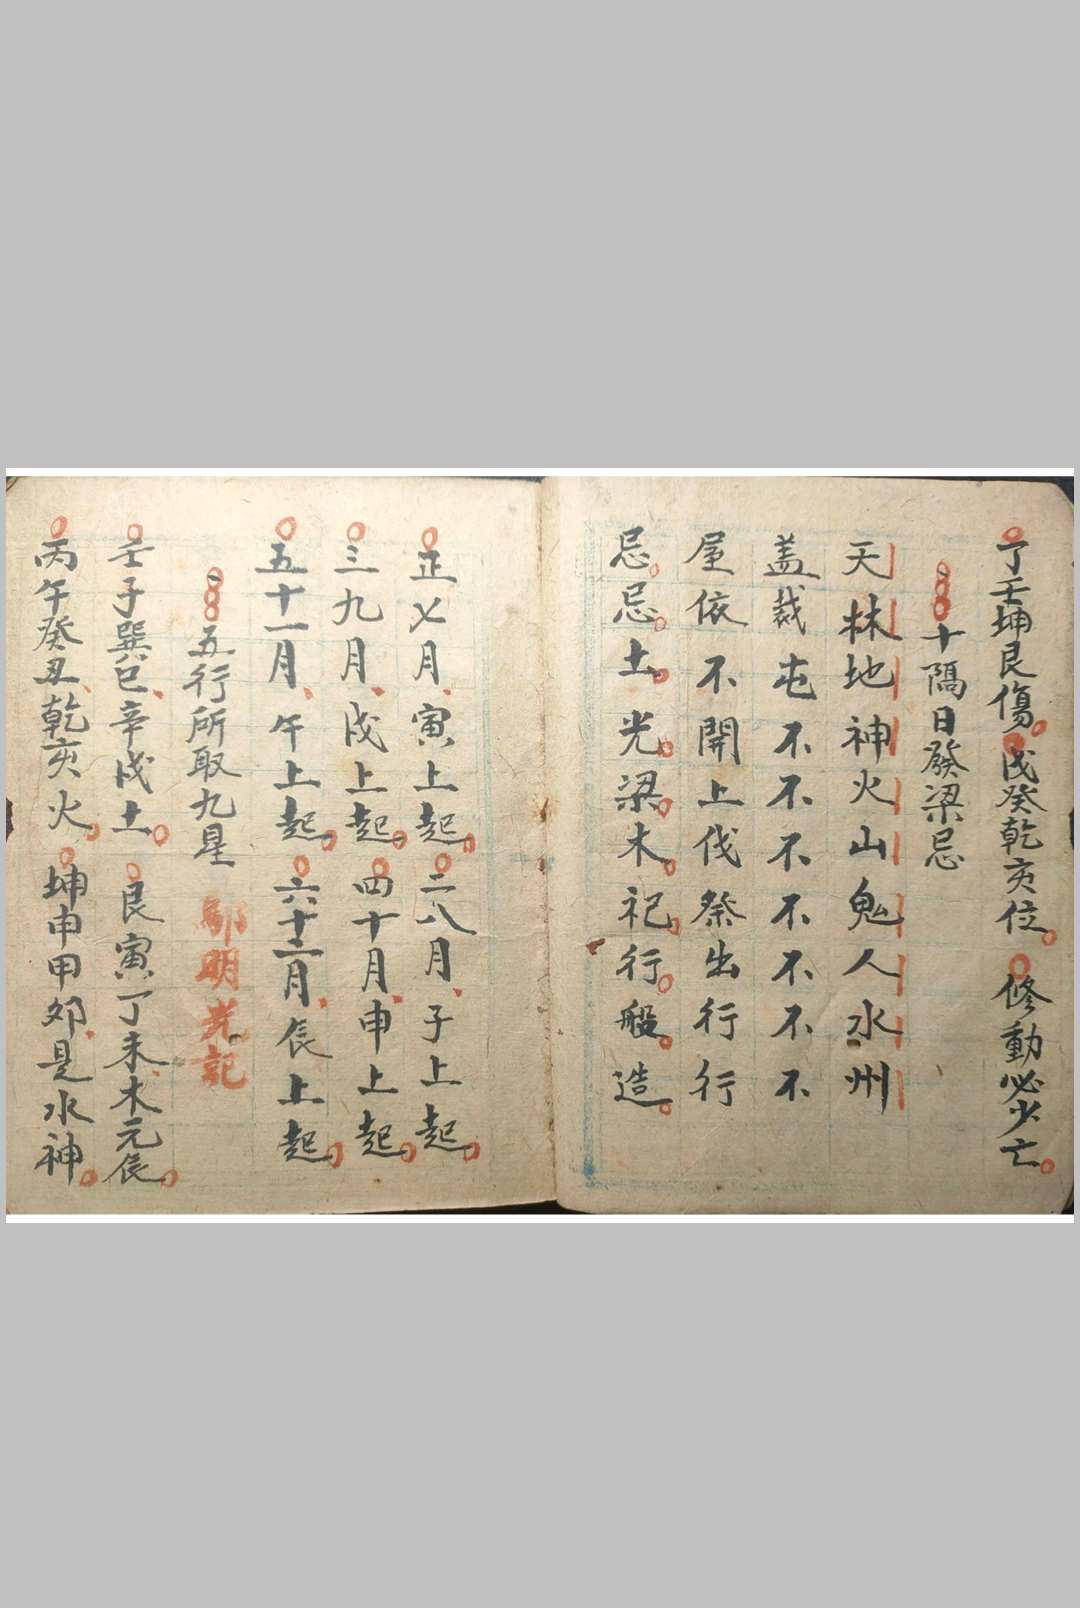 丁壬坤艮傷戊癸乾亥位修動必少亡
十隔日發梁忌
天林地神火山鬼人水州
盖裁屯不不不不不不不
屋依不開上伐祭出行行
忌忌土光梁木祀行般造
正七月寅上起二八月子上起
三九月戌上起四十月申上起
五十一月午上起六十二月辰上起
五行所取九星
鄔明光記
壬子巽巳辛戌土艮寅丁未木元辰
丙午癸丑乾亥火坤申甲卯是水神